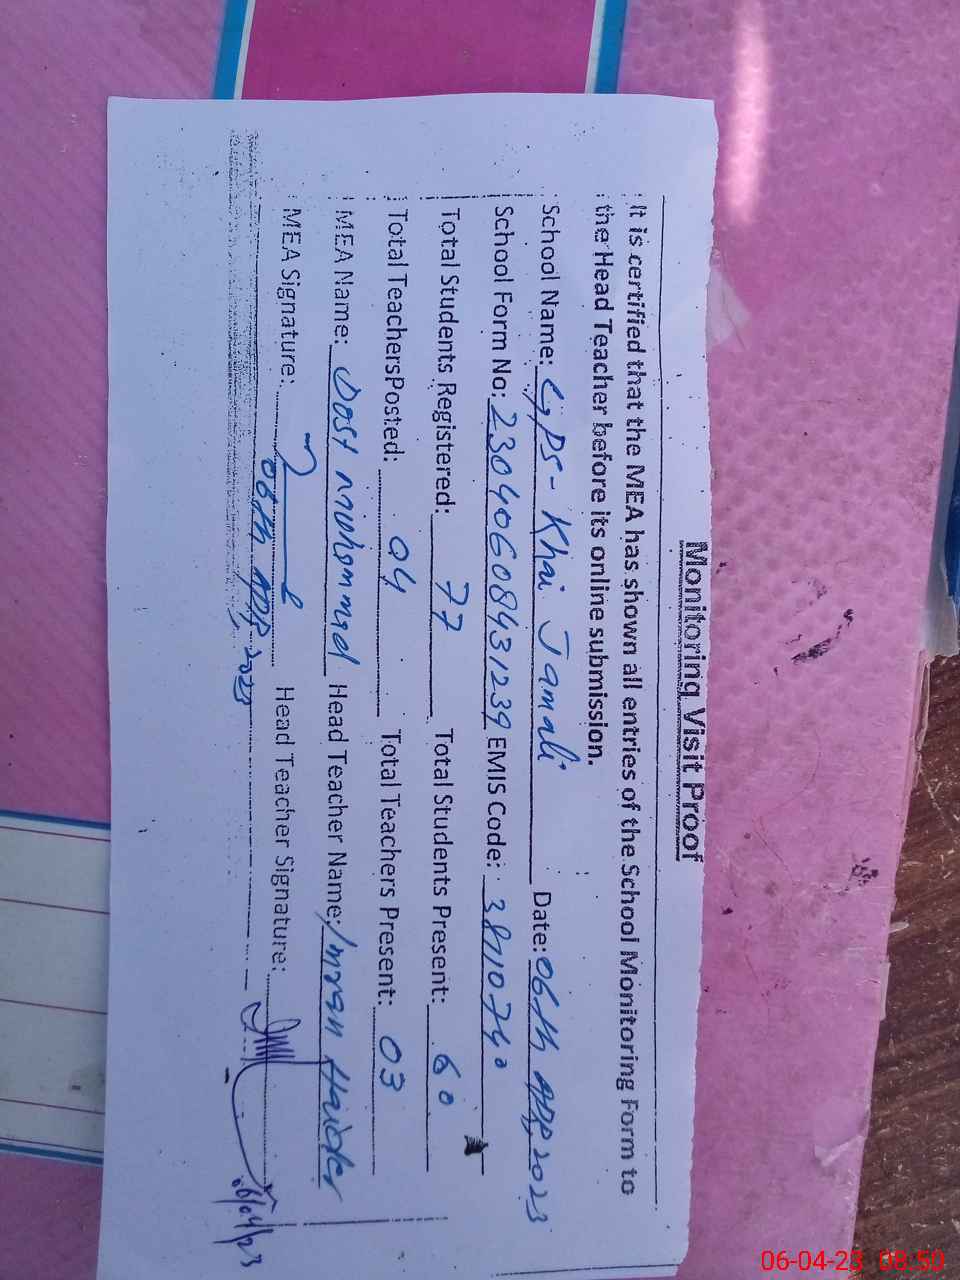 Monitoring Visit Proof
It is certified that the MEA has shown all entries of the School Monitoring Form to
the Head Teacher before its online submission.
School Name: GPS- Khai Jamali Date: 06th APR 2023
School Form No: 23040608431239 EMIS Code: 38110740
Total Students Registered: 77 Total Students Present: 60
Total TeachersPosted: 04 Total Teachers Present: 03
MEA Name: Dost Mohommad Head Teacher Name: Imran Haider
MEA Signature: Head Teacher Signature:
06th APR, 2023
06/04/23
06-04-23 08:50